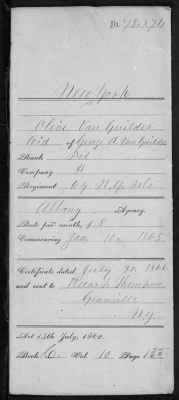 New York
Olive Van Guilder
Wid of George A. Van Guilder
Rank
Company H
Regiment N.Y. Vols
Albany Agency.
Rate per month, $ 8
Commencing Jan 10, 1865
Certificate dated July 20 1866
and sent to
Granville
N.Y.
Act 14th July, 1862.
Book Vol. Page